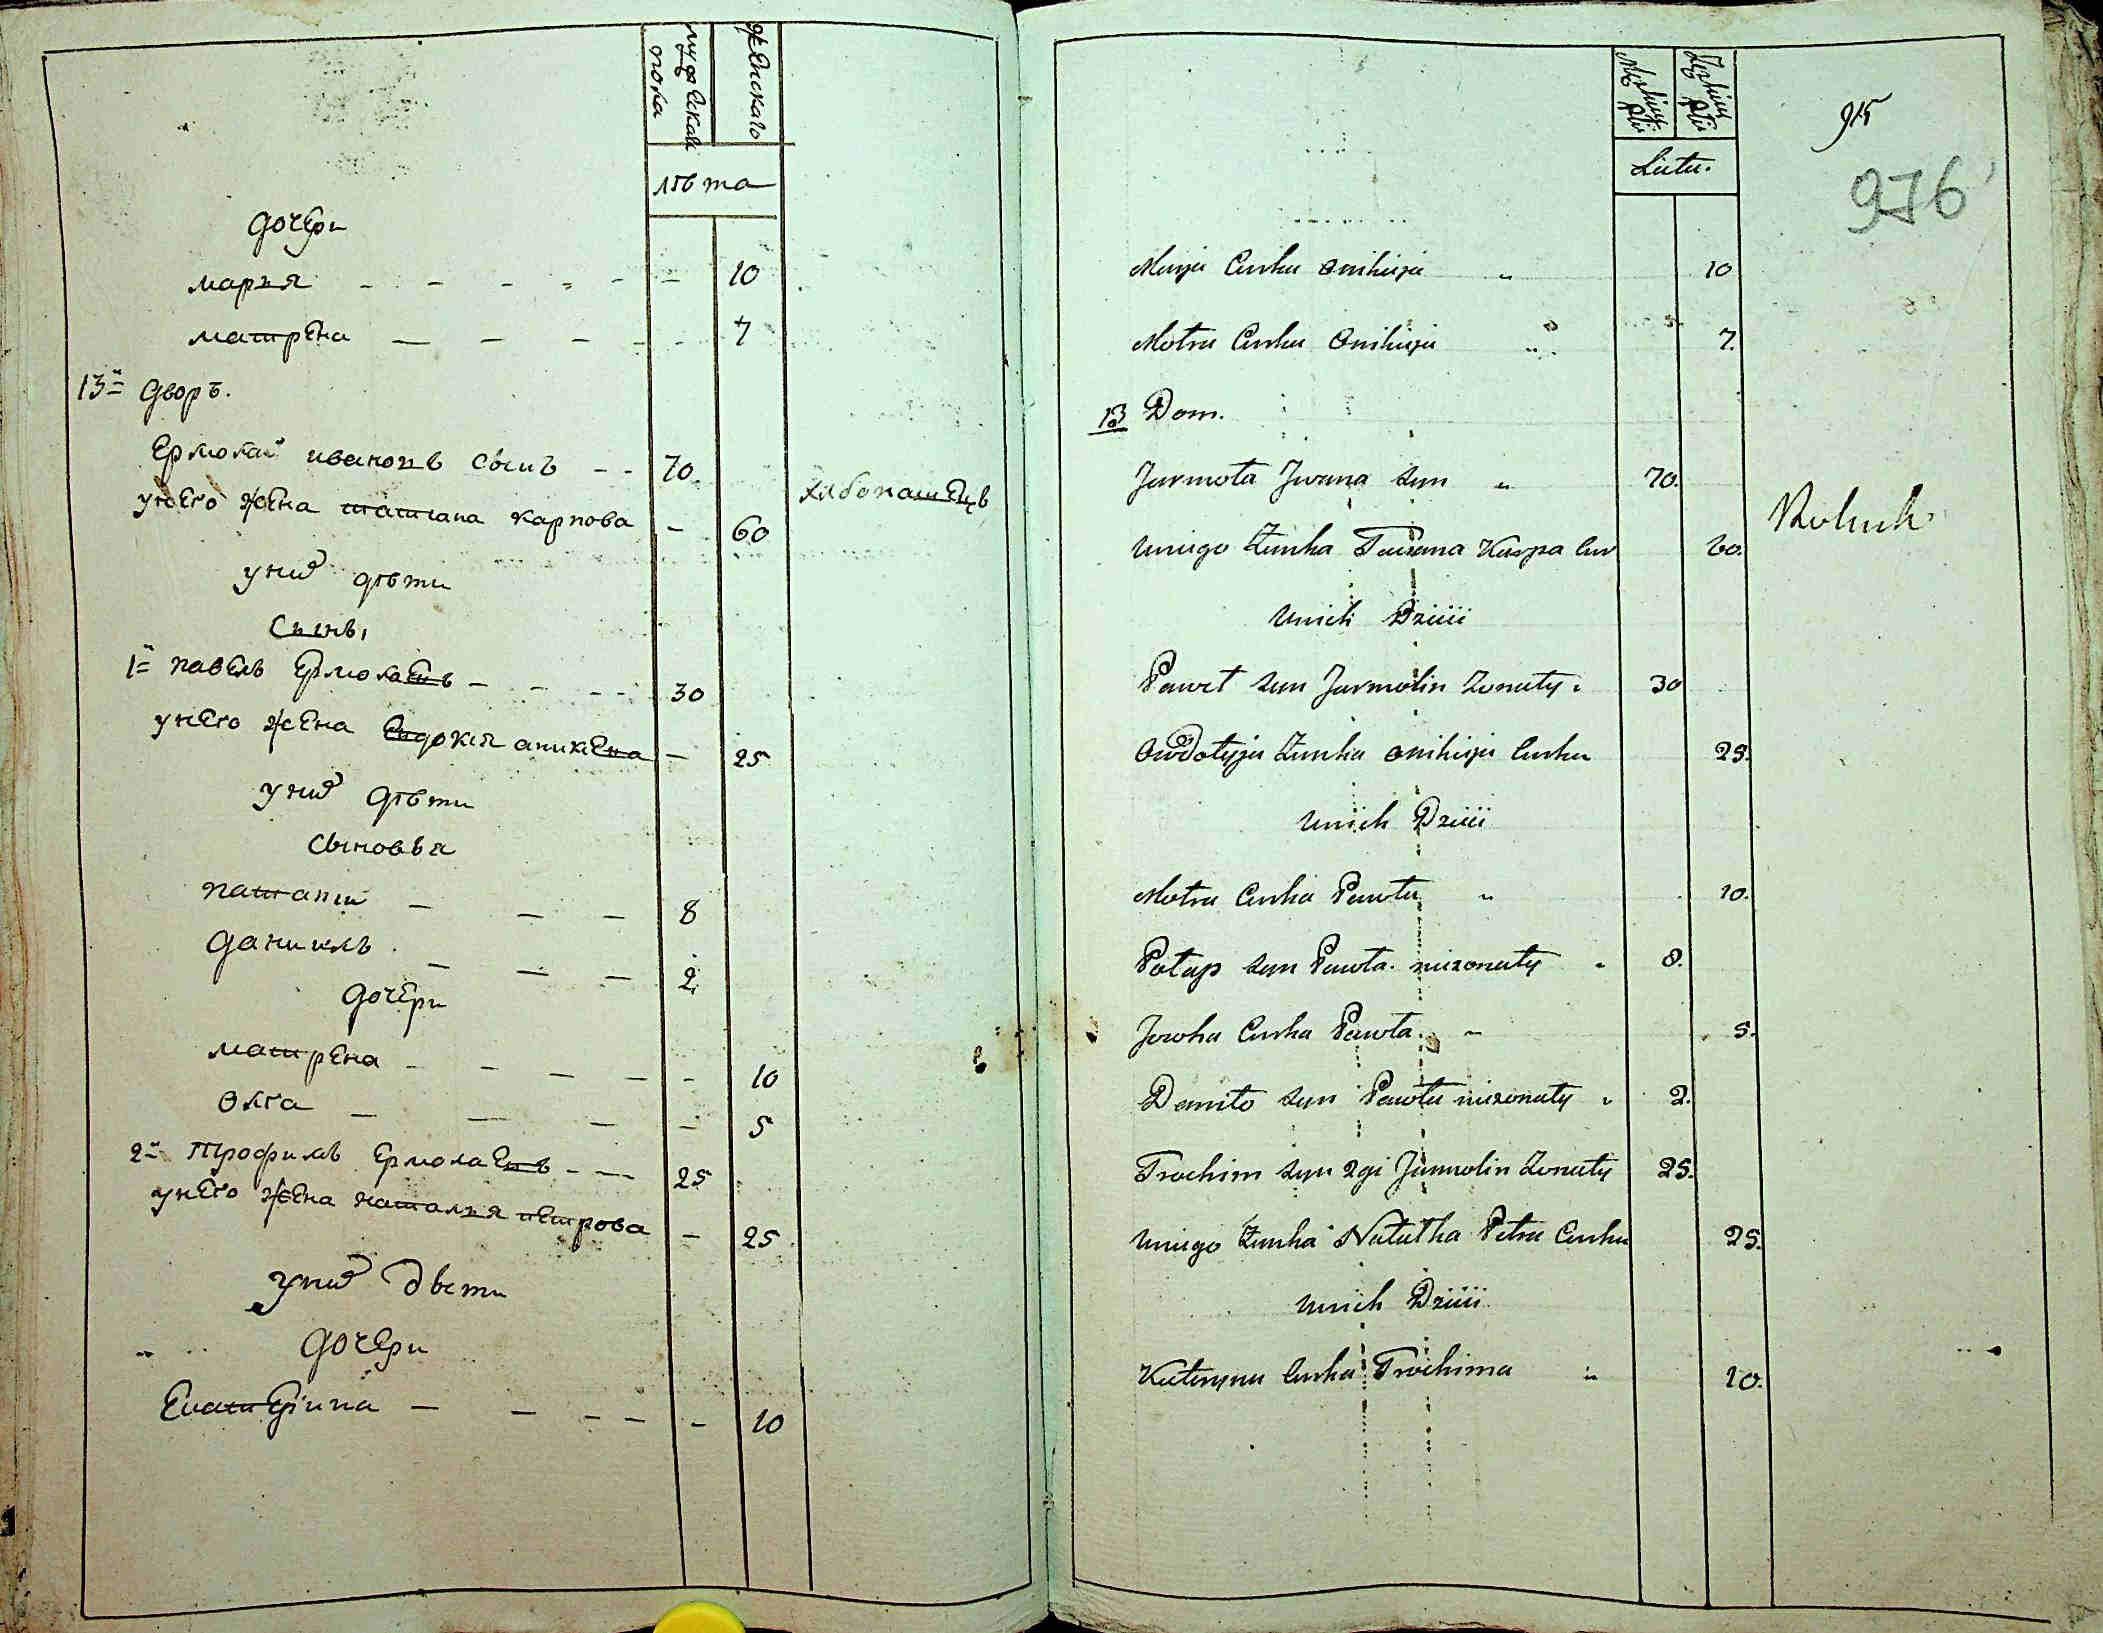 мужеска пола
женскаго
лѣта
дочери
марья - - - - - - 10
матрена - - - - - - 7
13й дворъ.
Ермолай ивановъ сынъ - - 70
унего жена татиана карпова - 60
хлебопашецъ
уних дѣти
сынъ,
1й павелъ Ермолаевъ - - - - 30
унего жена Евдокия аникиева - 25
уних дѣти
сыновья
патапи - - - 8
даниилъ - - - 2
дочери
матрена - - - - - 10
олга - - - - 5
2й трофимъ Ермолаевъ - - - 25
унего жена наталья петрова - 25
уних дѣти
дочери
Екатерина - - - - - 10
915
976
Męskiey Płci
Żeńskiey Płci
Latu.
Maryja Curka Onikieja " 10
Motra Curka Onikieja " 7.
13 Dom.
Jarmoła Jwana syn " 70.
Uniego Żonka Taciana Karpa Cur 60.
Rolnik
Unich Dzieci
Paweł syn Jarmolin Żonaty 30
Owdotyja Żonka Onikieja Curka 25.
Unich Dzieci
Motra Curka Pawła " 10.
Potap syn Pawła nieżonaty 8.
Jewha Curka Pawła " 5.
Daniło syn Pawła nieżonaty 2.
Trochim syn 2gi Jarmolin Żonaty 25.
Uniego Żonka Natałka Petra Curka 25.
Unich Dzieci
Kateryna Curka Trochima " 10.